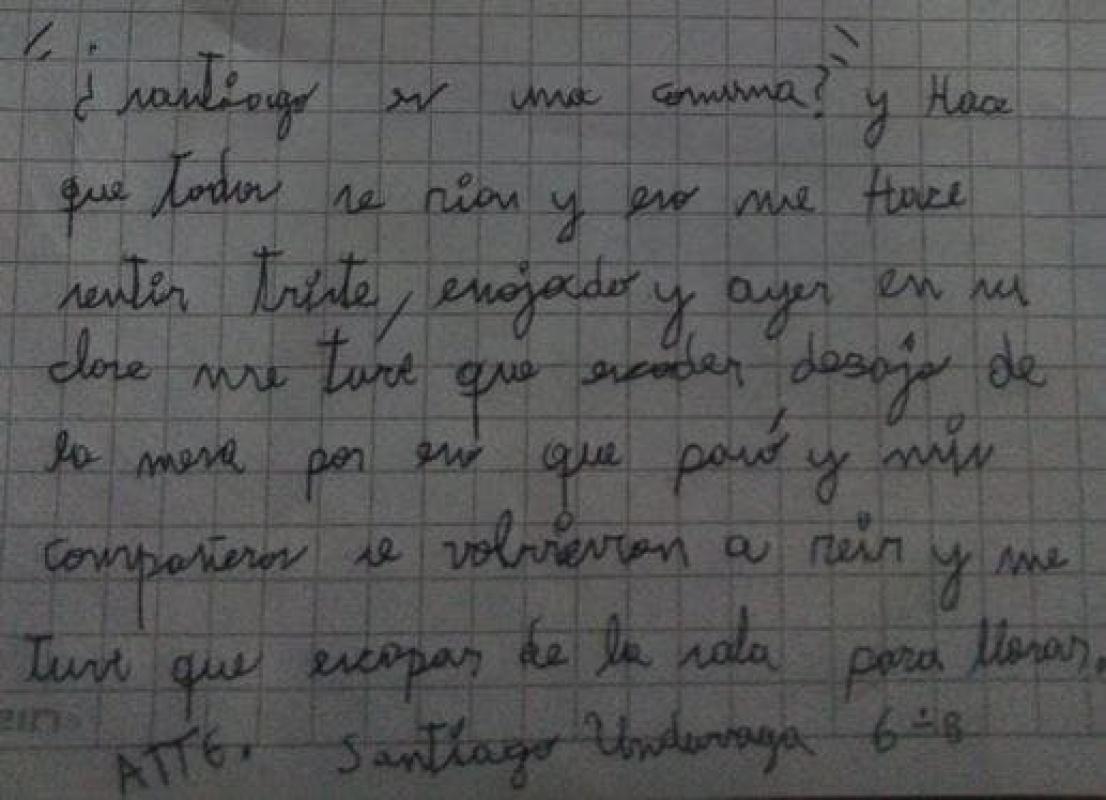 "¿santiago es una comuna?" y Hace
que todos se rian y eso me Hace
sentir triste, enojado y ayer en su
clase me tuve que escoder desajo de
la mesa por eso que pasó y mis
compañeros se volvieron a reir y me
tuve que escapar de la sala para llorar.
ATTE. Santiago Undurraga 6-B